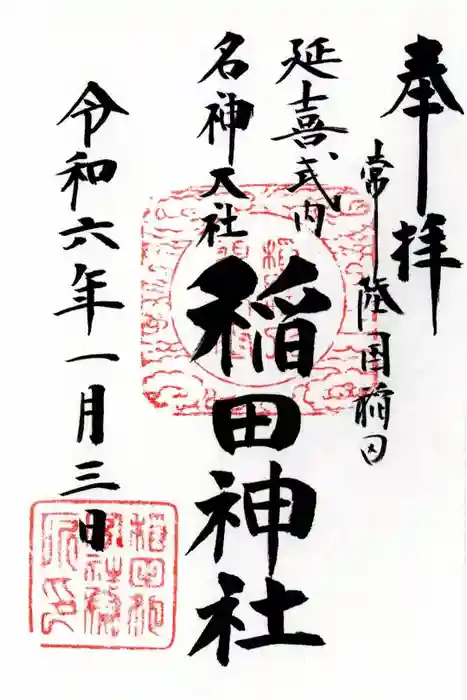 奉拝
常陸国稲田
延喜式内
名神大社
稲田神社
令和六年一月三日